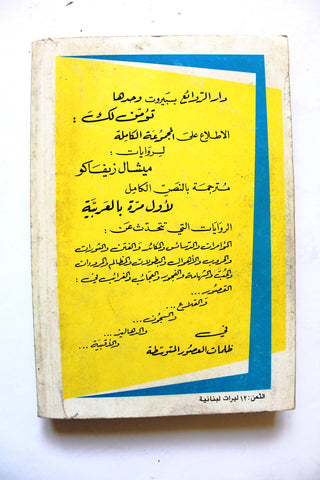 دار الروائع ببيروت وحدها
تؤمن لك :
الاطلاع على المجموعة الكاملة
لروايات :
ميشال زيفاكو
مترجمة بالنص الكامل
لأول مرة بالعربية
الروايات التي تتحدث عن :
المؤامرات والدسائس والمكائد والفتن والثورات
والحروب والأهوال والبطولات والمظالم والمروءات
والحب والشهامة والفجور والعجائب والغرائب في :
القصور ...
والقلاع ...
والسجون ...
والدهاليز ...
والأقبية ...
في
ظلمات العصور المتوسطة
الثمن: ١٢ ليرات لبنانية